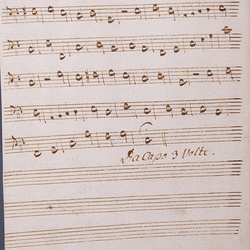 Da Capo 3 Volte.